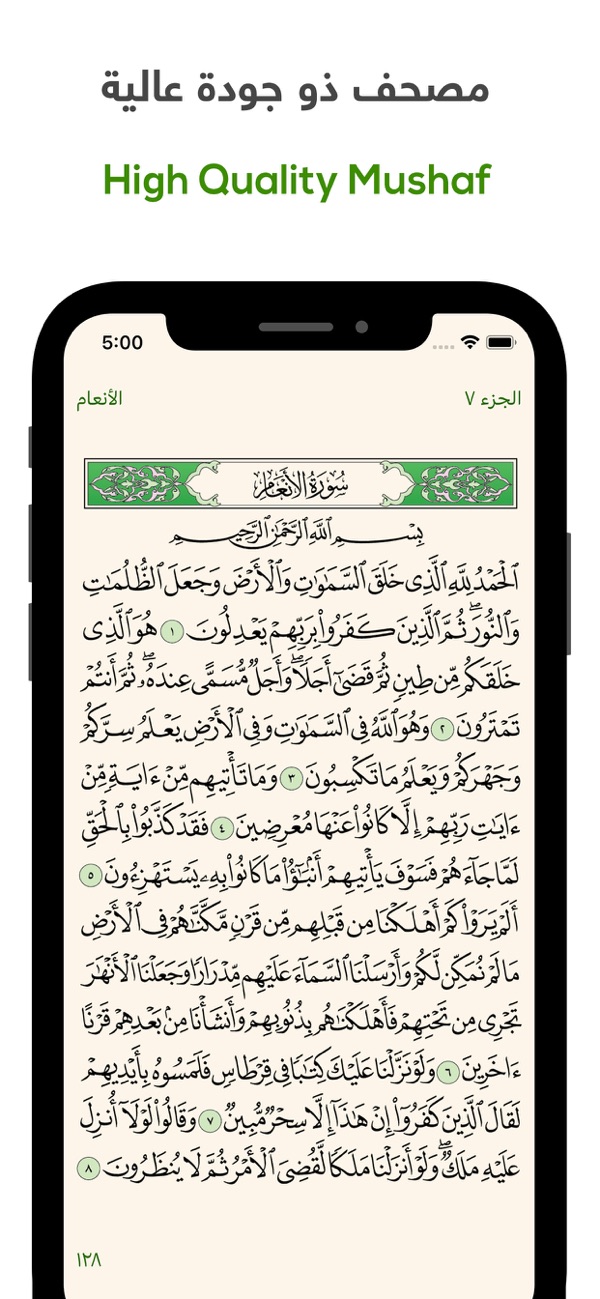 مصحف ذو جودة عالية
High Quality Mushaf
5:00
الجزء ٧
الأنعام
سُورَةُ الأَنْعَامِ
بِسْمِ ٱللَّهِ ٱلرَّحْمَٰنِ ٱلرَّحِيمِ
ٱلْحَمْدُ لِلَّهِ ٱلَّذِى خَلَقَ ٱلسَّمَٰوَٰتِ وَٱلْأَرْضَ وَجَعَلَ ٱلظُّلُمَٰتِ
وَٱلنُّورَ ۖ ثُمَّ ٱلَّذِينَ كَفَرُوا۟ بِرَبِّهِمْ يَعْدِلُونَ ١ هُوَ ٱلَّذِى
خَلَقَكُم مِّن طِينٍ ثُمَّ قَضَىٰٓ أَجَلًا ۖ وَأَجَلٌ مُّسَمًّى عِندَهُۥ ۖ ثُمَّ أَنتُمْ
تَمْتَرُونَ ٢ وَهُوَ ٱللَّهُ فِى ٱلسَّمَٰوَٰتِ وَفِى ٱلْأَرْضِ يَعْلَمُ سِرَّكُمْ
وَجَهْرَكُمْ وَيَعْلَمُ مَا تَكْسِبُونَ ٣ وَمَا تَأْتِيهِم مِّنْ ءَايَةٍ مِّنْ
ءَايَٰتِ رَبِّهِمْ إِلَّا كَانُوا۟ عَنْهَا مُعْرِضِينَ ٤ فَقَدْ كَذَّبُوا۟ بِٱلْحَقِّ
لَمَّا جَآءَهُمْ فَسَوْفَ يَأْتِيهِمْ أَنۢبَٰٓؤُا۟ مَا كَانُوا۟ بِهِۦ يَسْتَهْزِءُونَ ٥
أَلَمْ يَرَوْا۟ كَمْ أَهْلَكْنَا مِن قَبْلِهِم مِّن قَرْنٍ مَّكَّنَّٰهُمْ فِى ٱلْأَرْضِ
مَا لَمْ نُمَكِّن لَّكُمْ وَأَرْسَلْنَا ٱلسَّمَآءَ عَلَيْهِم مِّدْرَارًا وَجَعَلْنَا ٱلْأَنْهَٰرَ
تَجْرِى مِن تَحْتِهِمْ فَأَهْلَكْنَٰهُم بِذُنُوبِهِمْ وَأَنشَأْنَا مِنۢ بَعْدِهِمْ قَرْنًا
ءَاخَرِينَ ٦ وَلَوْ نَزَّلْنَا عَلَيْكَ كِتَٰبًا فِى قِرْطَاسٍ فَلَمَسُوهُ بِأَيْدِيهِمْ
لَقَالَ ٱلَّذِينَ كَفَرُوٓا۟ إِنْ هَٰذَآ إِلَّا سِحْرٌ مُّبِينٌ ٧ وَقَالُوا۟ لَوْلَآ أُنزِلَ
عَلَيْهِ مَلَكٌ ۖ وَلَوْ أَنزَلْنَا مَلَكًا لَّقُضِىَ ٱلْأَمْرُ ثُمَّ لَا يُنظَرُونَ ٨
١٢٨